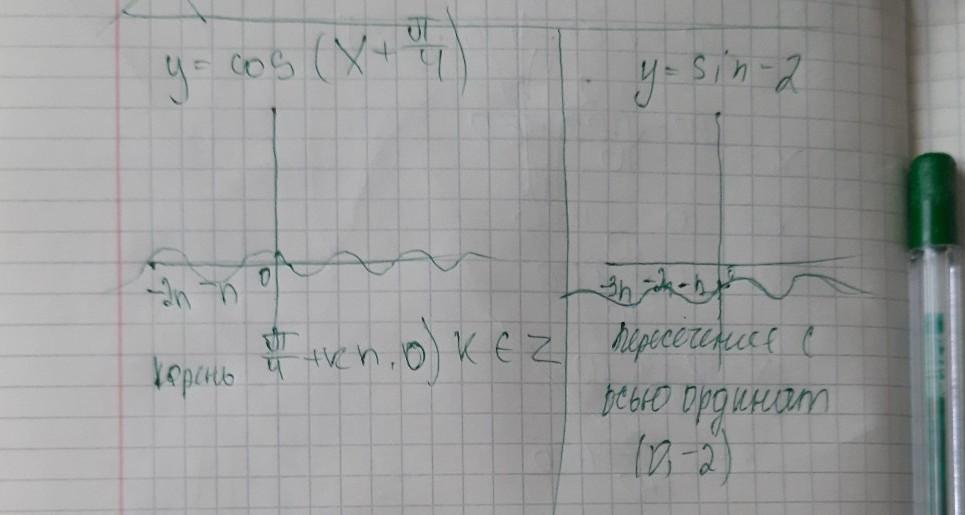 y = cos (x + π/4)
-2π -π 0
корень π/4 + кπ, 0) к ∈ Z
y = sin - 2
-3π -2π -π
пересечение с
осью ординат
(0, -2)